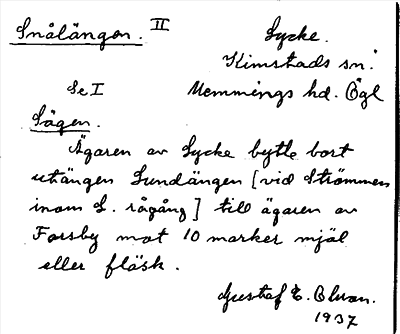 Snålängen. II
Lycke.
Kimstads sn.
Se I
Memmings hd. Ögl
Sägen.
Ägaren av Lycke bytte bort
utängen Sundängen [vid Strömmen
inom L. rågång] till ägaren av
Forsby mot 10 marker mjöl
eller fläsk.
Gustaf E. Blman.
1937